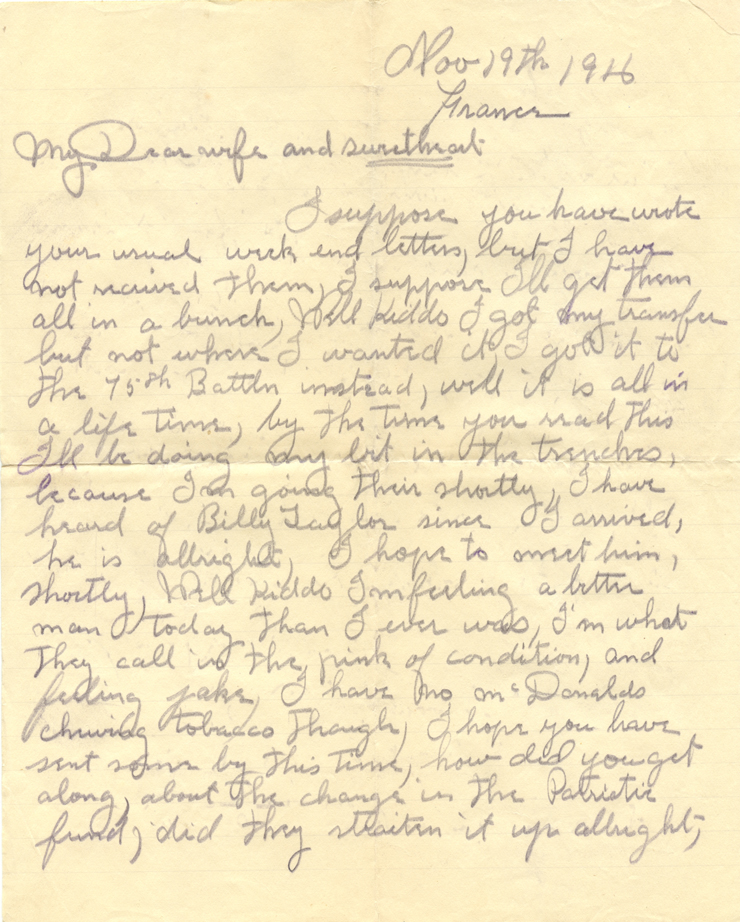 Nov 19th 1916
France
My Dear wife and sweetheart
I suppose you have wrote
your usual week end letters, but I have
not recived them, I suppose I'll get them
all in a bunch, Well kiddo I got my transfer
but not where I wanted it, I got it to
the 75th Battln instead, well it is all in
a life time, by the time you read this
I'll be doing my bit in the trenches,
because I'm going their shortly, I have
heard of Billy Taylor since I arrived,
he is allright, I hope to meet him,
shortly, Well kiddo I'm feeling a better
man today than I ever was, I'm what
they call in the pink of condition, and
feeling jake, I have no McDonalds
chewing tobacco though, I hope you have
sent some by this time, how did you get
along, about the change in the Patriotic
fund, did they straiten it up allright,